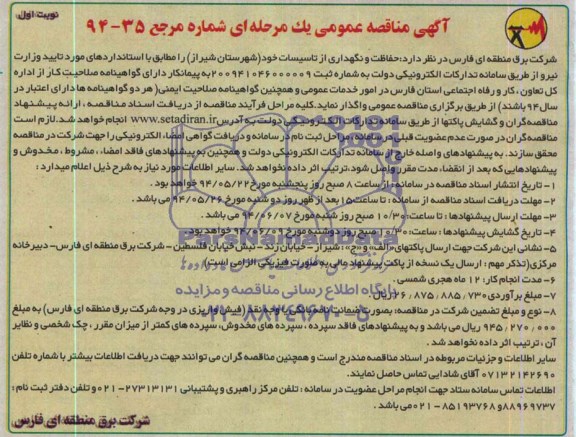 نوبت اول
آگهی مناقصه عمومی یك مرحله ای شماره مرجع ۳۵-۹۴
شرکت برق منطقه ای فارس در نظر دارد: حفاظت و نگهداری از تاسیسات خود (شهرستان شیراز) را مطابق با استانداردهای مورد تایید وزارت
نیرو از طریق سامانه تدارکات الکترونیکی دولت به شماره ثبت ۲۰۰۹۴۱۰۴۶۰۰۰۰۰۹ به پیمانکار دارای گواهینامه صلاحیت کار از اداره
کل تعاون، کار و رفاه اجتماعی استان فارس در امور خدمات عمومی و همچنین گواهینامه صلاحیت ایمنی( هر دو گواهینامه ها دارای اعتبار در
سال ۹۴ باشند) از طریق برگزاری مناقصه عمومی واگذار نماید. کلیه مراحل فرآیند مناقصه از دریافت اسناد مناقصه ، ارائه پیشنهاد
مناقصه گران و گشایش پاکتها از طریق سامانه تدارکات الکترونیکی دولت به آدرس www.setadiran.ir انجام خواهد شد. لازم است
مناقصه گران در صورت عدم عضویت قبلی در سامانه، مراحل ثبت نام در سامانه و دریافت گواهی امضاء الکترونیکی را جهت شرکت در مناقصه
محقق سازند. به پیشنهادهای واصله خارج از سامانه تدارکات الکترونیکی دولت و همچنین به پیشنهادهای فاقد امضاء ، مشروط ، مخدوش و
پیشنهادهایی که بعد از انقضاء مدت مقرر واصل شود، ترتیب اثر داده نخواهد شد. سایر اطلاعات مورد نیاز به شرح ذیل اعلام میدارد :
۱ - تاریخ انتشار اسناد مناقصه در سامانه: از ساعت ۸ صبح روز پنجشنبه مورخ ۹۴/۰۵/۲۲ خواهد بود .
۲- مهلت دریافت اسناد مناقصه از سامانه : تا ساعت ۱۵ بعد از ظهر روز دو شنبه مورخ ۹۴/۰۵/۲۶ می باشد .
۳- مهلت ارسال پیشنهادها : تا ساعت: ۱۰/۳۰ صبح روز شنبه مورخ ۹۴/۰۶/۰۷ می باشد .
۴- تاریخ گشایش پیشنهادها : ساعت: ۱۰/۳۰ صبح روز دوشنبه مورخ ۹۴/۰۶/۰۹ خواهد بود.
۵- نشانی این شرکت جهت ارسال پاکتهای «الف» و «ج» : شیراز - خیابان زند - نبش خیابان فلسطین - شرکت برق منطقه ای فارس - دبیرخانه
مرکزی (تذکر مهم : ارسال یک نسخه از پاکت پیشنهاد مالی به صورت فیزیکی الزامی است)
۶- مدت انجام کار: ۱۲ ماه هجری شمسی.
۷- مبلغ برآوردی: ۲۶/۸۸۵/۸۸۵/۷۳۰ ریال.
۸- نوع و مبلغ تضمین شرکت در مناقصه: بصورت ضمانتنامه بانکی یا وجه نقد (فیش واریزی در وجه شرکت برق منطقه ای فارس) به مبلغ
۹۴۵/۲۷۰/۰۰۰ ریال می باشد و به پیشنهادهای فاقد سپرده ، سپرده های مخدوش، سپرده های کمتر از میزان مقرر ، چک شخصی و نظایر
آن ، ترتیب اثر داده نخواهد شد.
سایر اطلاعات و جزئیات مربوطه در اسناد مناقصه مندرج است و همچنین مناقصه گران می توانند جهت دریافت اطلاعات بیشتر با شماره تلفن
۰۷۱۳۲۱۴۲۶۹۰ آقای شادابی تماس حاصل نمایند.
اطلاعات تماس سامانه ستاد جهت انجام مراحل عضویت در سامانه : تلفن مرکز راهبری و پشتیبانی ۲۷۳۱۳۱۳۱-۰۲۱ و تلفن دفتر ثبت نام :
۸۸۹۶۹۷۳۷ و ۸۵۱۹۳۷۶۸-۰۲۱ می باشد .
شرکت برق منطقه ای فارس
پایگاه اطلاع رسانی مناقصه و مزایده
۰۲۱-۸۸۳۴۹۶۷۰